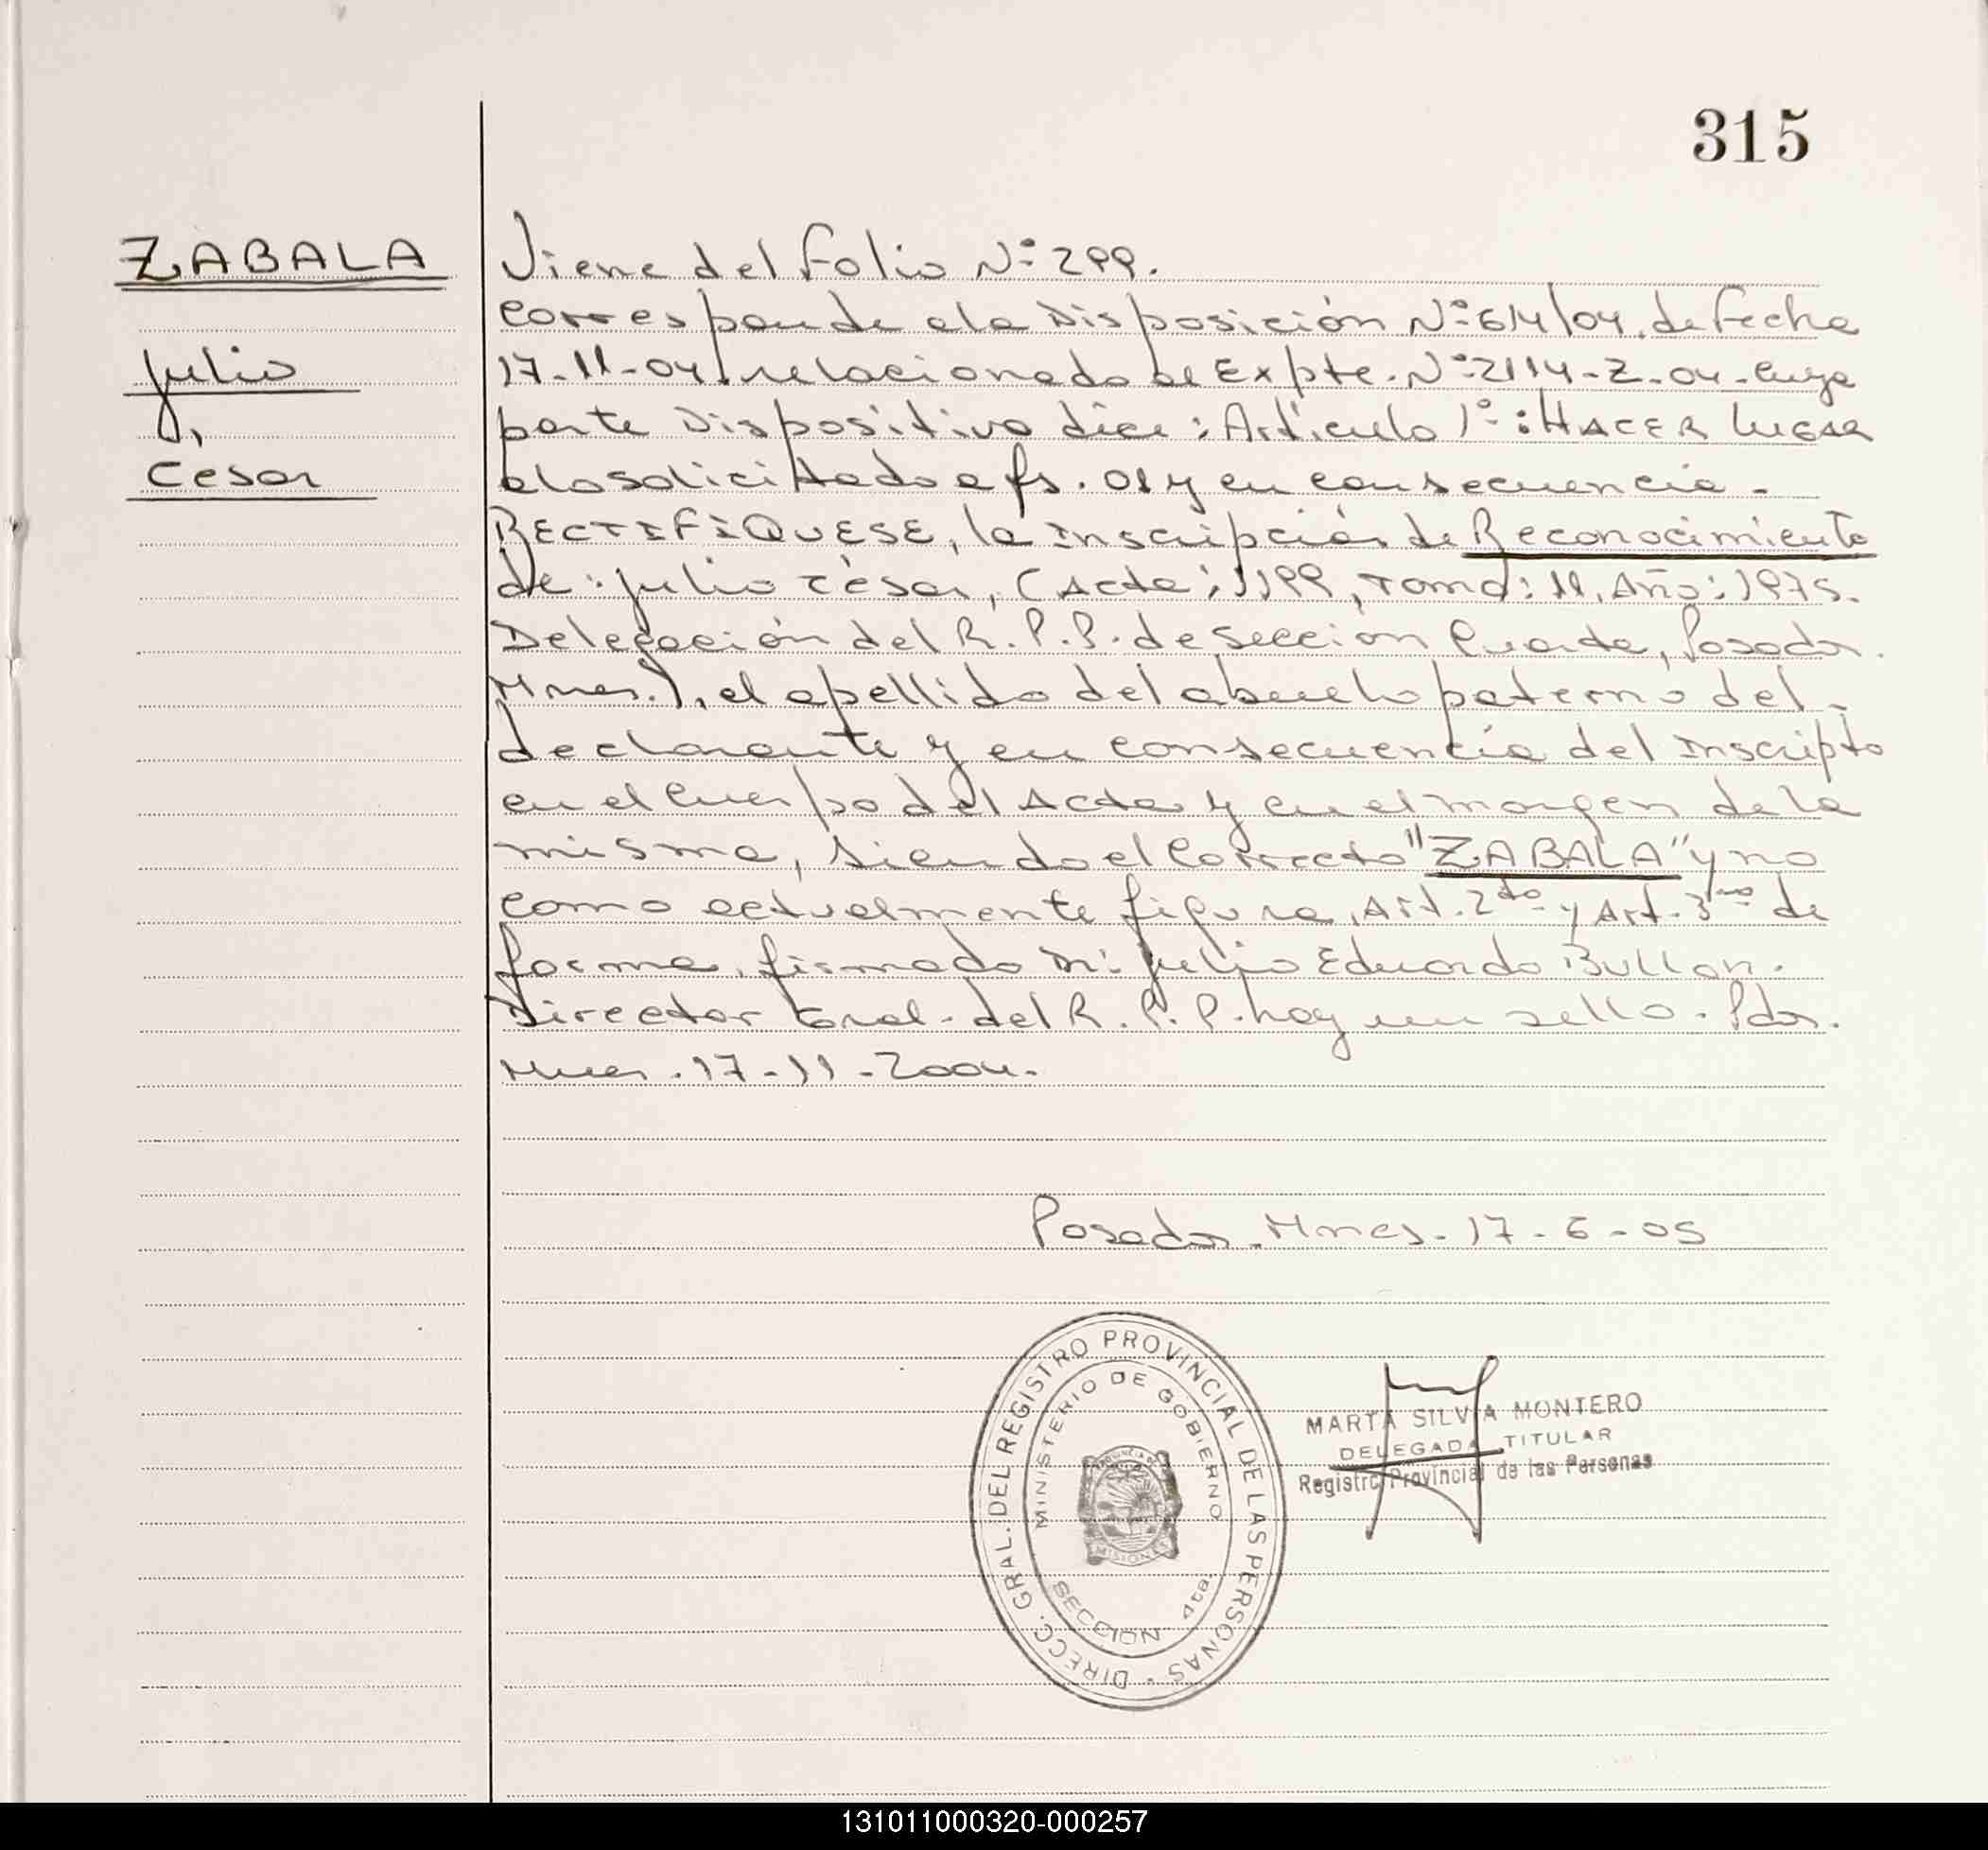 315
ZABALA
Julio
César
Viene del folio N° 299.
Corresponde a la Disposición N° 614/04, de fecha
17-11-04, relacionado al Expte. N° 2114-Z-04- cuya
parte Dispositiva dice: Artículo 1°: HACER LUGAR
a lo solicitado a fs. 01 y en consecuencia-
RECTIFÍQUESE, la Inscripción de Reconocimiento
de: Julio César, (Acta: 1199, Tomo: II, Año: 1975.
Delegación del R.P.P. de Sección Cuarta, Posadas.
Mnes.), el apellido del abuelo paterno del-
declarante y en consecuencia del Inscripto
en el cuerpo del Acta y en el margen de la
misma, siendo el correcto "ZABALA" y no
como actualmente figura, Art. 2do y Art. 3ro de
forma, firmado Dr. Julio Eduardo Bullon.
Director Gral. del R.P.P. hay un sello. Pdas.
Mnes. 17-11-2004.
Posadas. Mnes. 17-6-05
DIRECC. GRAL. DEL REGISTRO PROVINCIAL DE LAS PERSONAS
MINISTERIO DE GOBIERNO
MISIONES
SECCION 4ta.
MARTA SILVIA MONTERO
DELEGADA TITULAR
Registro Provincial de las Personas
131011000320-000257